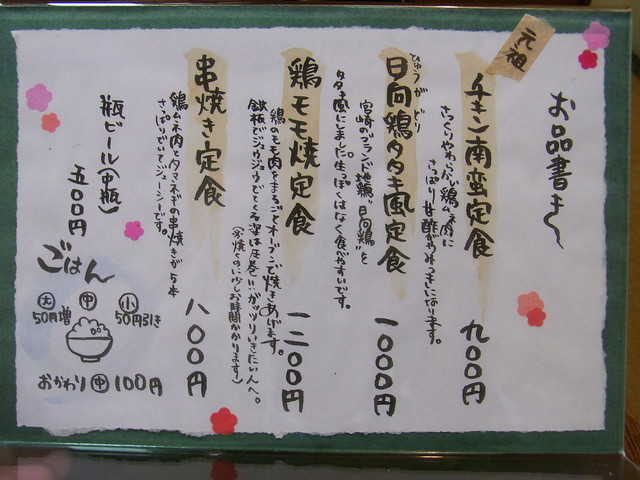 お品書き
元祖
チキン南蛮定食 九〇〇円
さっくりやわらかい鶏ムネ肉に
さっぱり甘酢がやみつきになります。
ひゅうがどり
日向鶏タタキ風定食 一〇〇〇円
宮崎のブランド地鶏"日向鶏"を
タタキ風にしました。生っぽくはなく食べやすいです。
鶏モモ焼定食 一二〇〇円
鶏のモモ肉をまるごとオーブンで焼きあげます。
鉄板でジュウジュウでてくる姿は圧巻!!ガッツリいきたい人へ。
(※焼くのに少しお時間かかります)
串焼き定食 八〇〇円
鶏ムネ肉とタマネギの串焼きが5本
さっぱりでいてジューシーです。
瓶ビール(中瓶) 五〇〇円
ごはん
大 中 小
50円増 50円引き
おかわり 中 100円